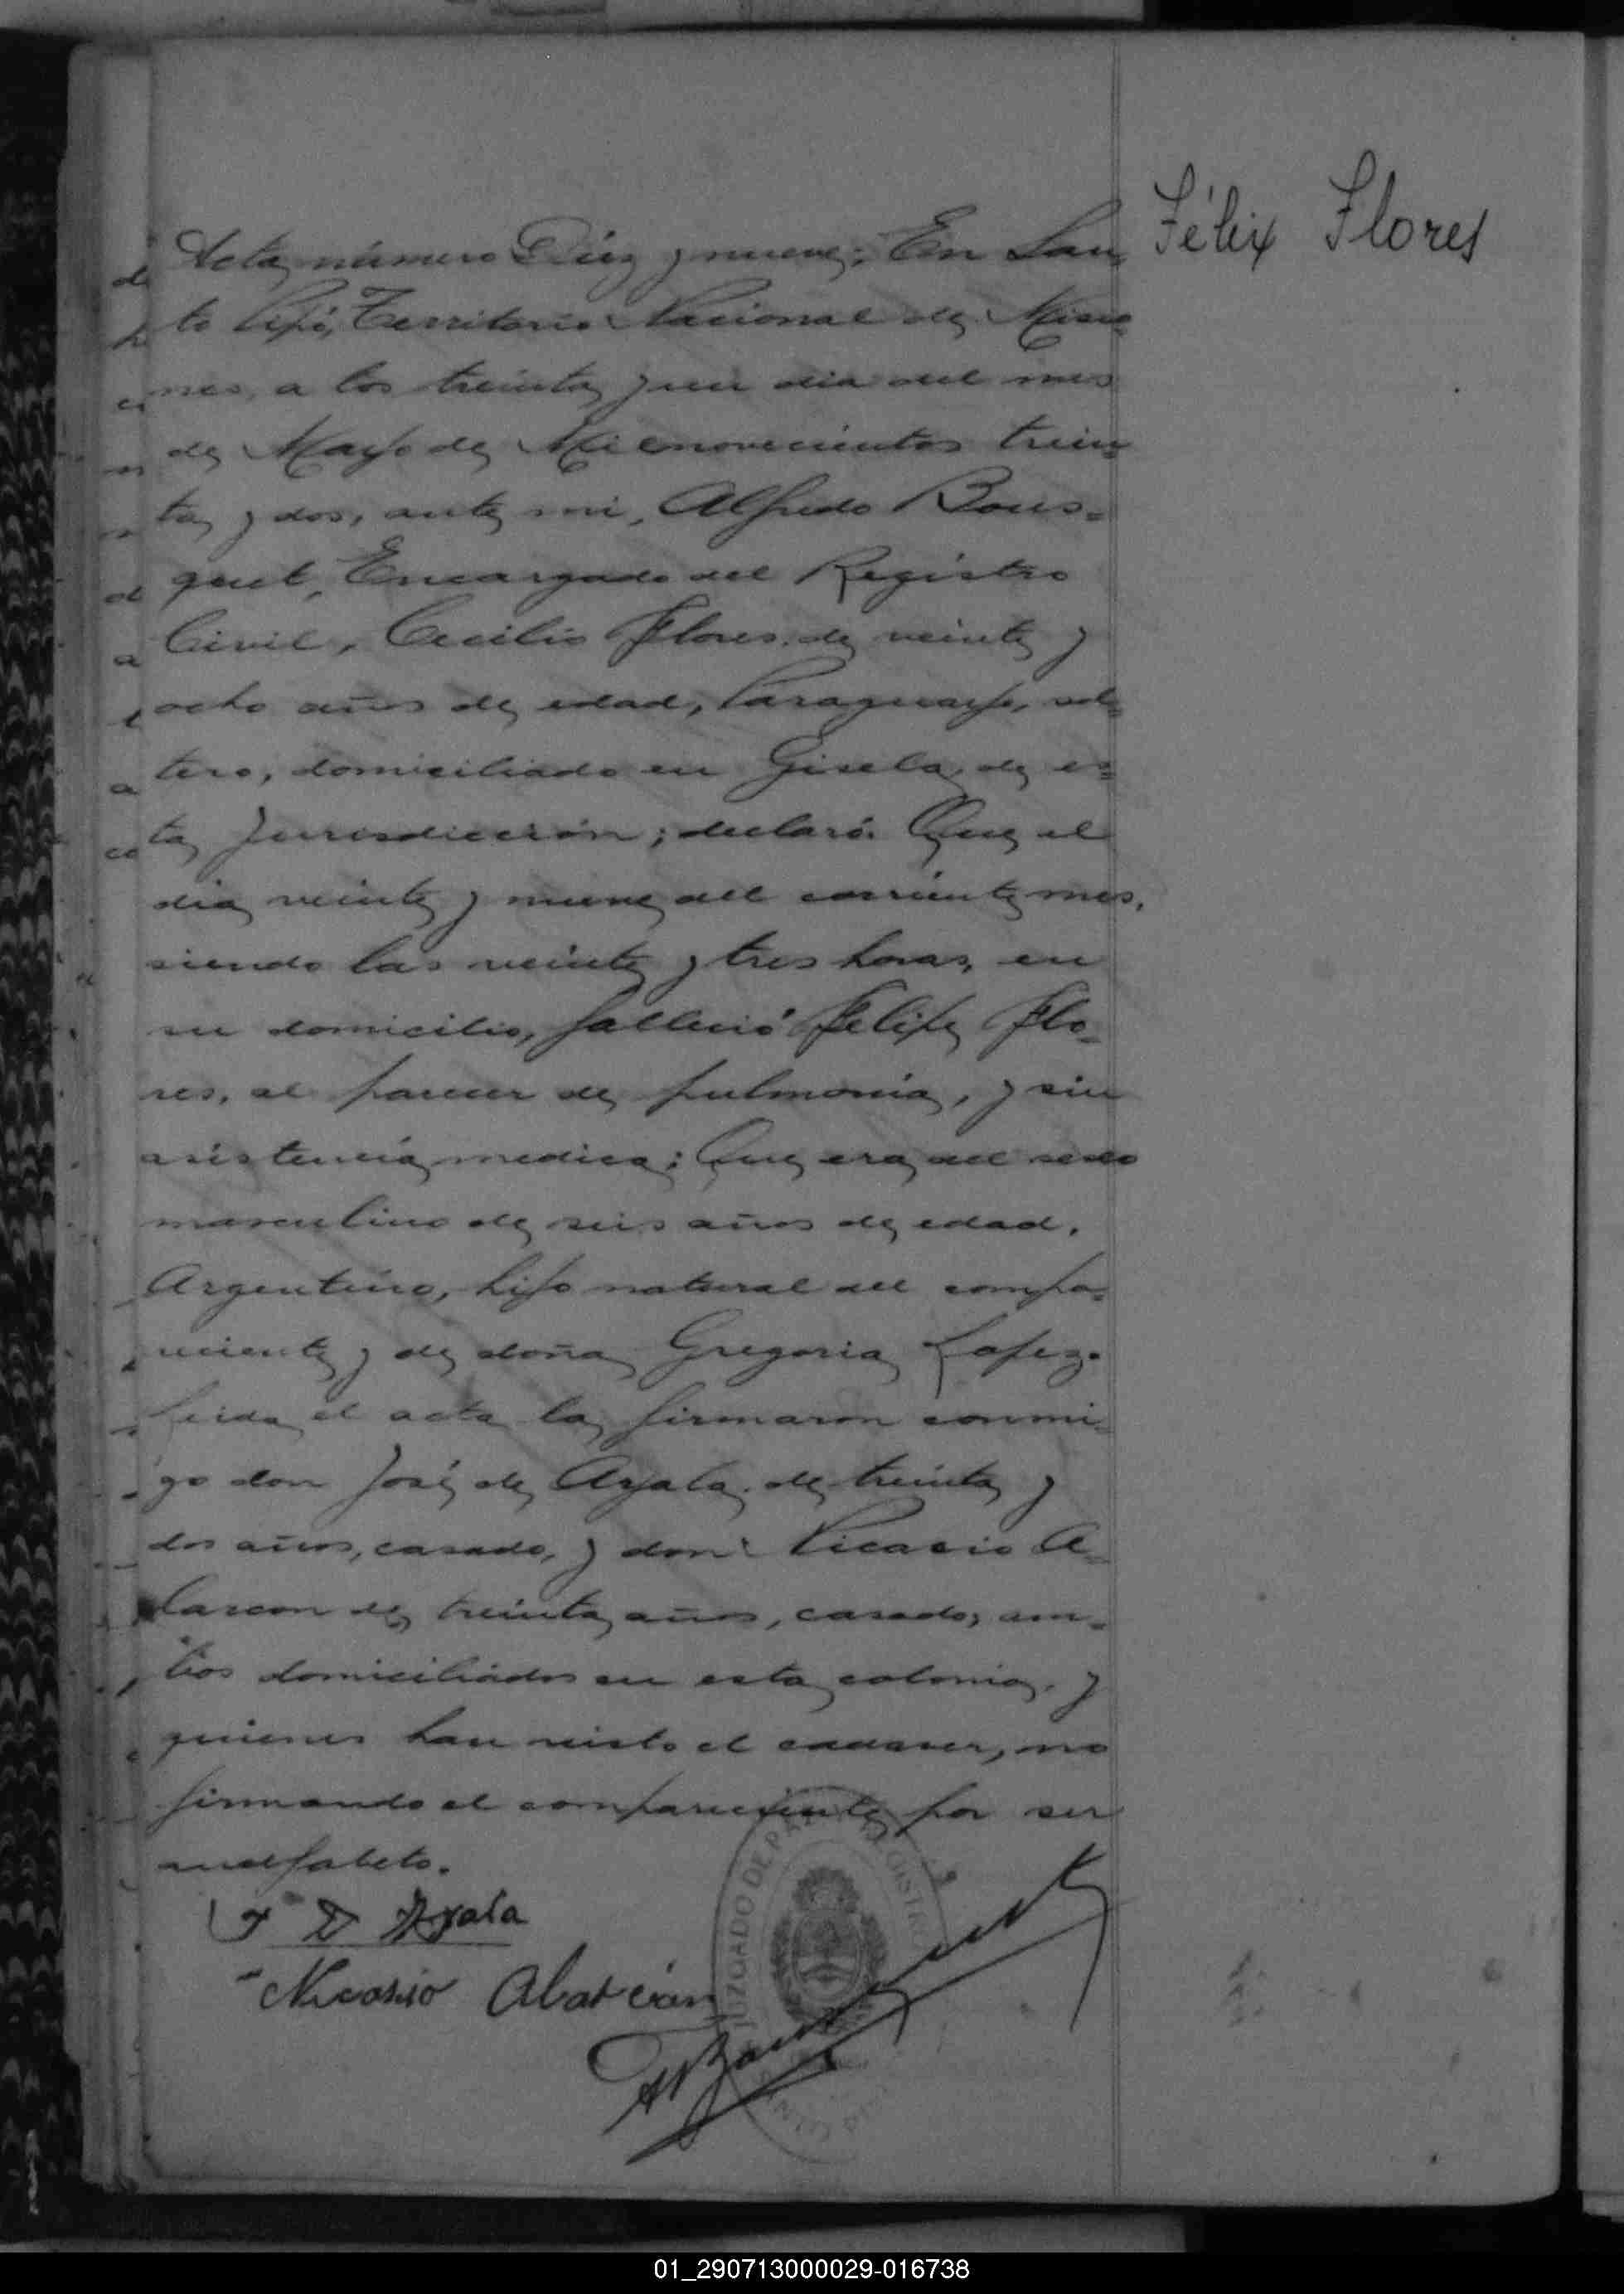 Félix Flores
Acta número Diez y nueve: En San
to Pipó, Territorio Nacional de Misio
nes, a los treinta y un dia del mes
de Mayo de Mil novecientos trein=
ta y dos, ante mi, Alfredo Bous=
quet, Encargado del Registro
Civil, Cecilio Flores, de veinte y
ocho años de edad, Paraguayo, sol=
tero, domiciliado en Gisela, de es=
ta Jurisdicción; declaró: Que el
dia veinte y nueve del corriente mes,
siendo las veinte y tres horas, en
su domicilio, falleció Felipe Flo=
res, al parecer de pulmonia, y sin
asistencia medica; Que era del sexo
masculino de seis años de edad,
Argentino, hijo natural del compa=
reciente y de doña Gregoria Lopez.
Leida el acta la firmaron conmi=
go don José de Ayala, de treinta y
dos años, casado, y don Nicasio A=
larcon de treinta años, casado, am=
bos domiciliados en esta colonia, y
quienes han visto el cadaver, no
firmando el compareciente por ser
analfabeto.
J D Ayala
Nicasio Alarcón
JUZGADO DE PAZ
01_290713000029-016738